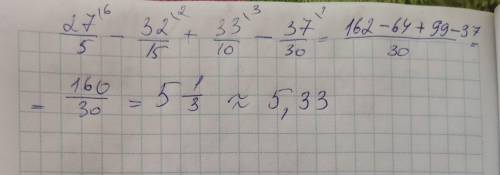 27^{\6}/5 - 32^{\2}/15 + 33^{\3}/10 - 37^{\1}/30 = (162 - 64 + 99 - 37)/30 =
= 160/30 = 5 1/3 ≈ 5,33